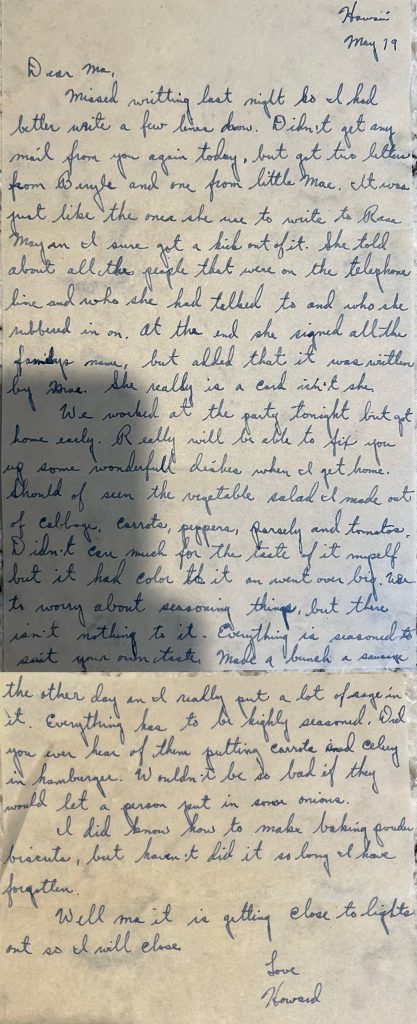 Hawaii
May 19
Dear Ma,
Missed writting last night so I had
better write a few lines down. Didn't get any
mail from you again today, but got two letters
from Beryle and one from little Mae. It was
just like the ones she use to write to Rasa
May an I sure got a kick out of it. She told
about all the people that were on the telephone
line and who she had talked to and who she
rubbered in on. At the end she signed all the
familys name, but added that it was written
by Mae. She really is a card isn't she.
We worked at the party tonight but got
home early. Really will be able to fix you
up some wonderfull dishes when I get home.
Should of seen the vegetable salad I made out
of cabbage, carrots, peppers, parsely and tomatos.
Didn't care much for the taste of it myself
but it had color to it an went over big. Use
to worry about seasoning things, but there
isn't nothing to it. Everything is seasoned to
suit your own taste. Made a bunch a sausage
the other day an I really put a lot of sage in
it. Everything has to be highly seasoned. Did
you ever hear of them putting carrots and celery
in hamburger. Wouldn't be so bad if they
would let a person put in some onions.
I did know how to make baking powder
biscuts, but haven't did it so long I have
forgotten.
Well ma it is getting close to lights
out so I will close.
Love
Howard